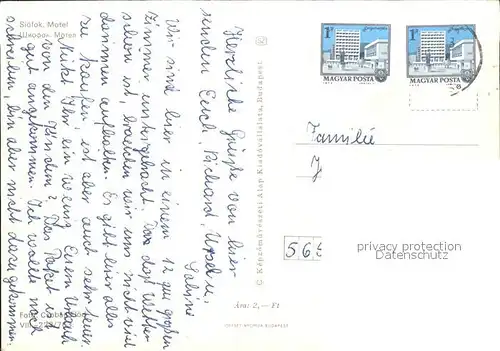 Siófok, Motel
Шиофок Мотел
Herzliche Grüße von hier
senden Euch, Richard, Ursel u.
Sabine
Wir sind hier in einem 12 qm großen
Zimmer untergebracht. Da das Wetter
schön ist, brauchen wir uns nicht viel
darinnen aufhalten. Es gibt hier alles
zu kaufen, ist aber auch sehr teuer.
Nützt Ihr ein wenig Euren Urlaub
von den Kindern? Das Paket ist
gut angekommen. Ich wollte noch
schreiben, bin aber nicht dazu gekommen.
Foto:
© Képzőművészeti Alap Kiadóvállalata, Budapest
Ára: 2,— Ft
OFFSET NYOMDA BUDAPEST
1 Ft
MAGYAR POSTA
1 Ft
MAGYAR POSTA
Familie
J
565
privacy protection
Datenschutz